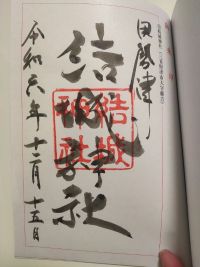 伊勢津
結城神社
結城
神社
令和六年十二月十五日